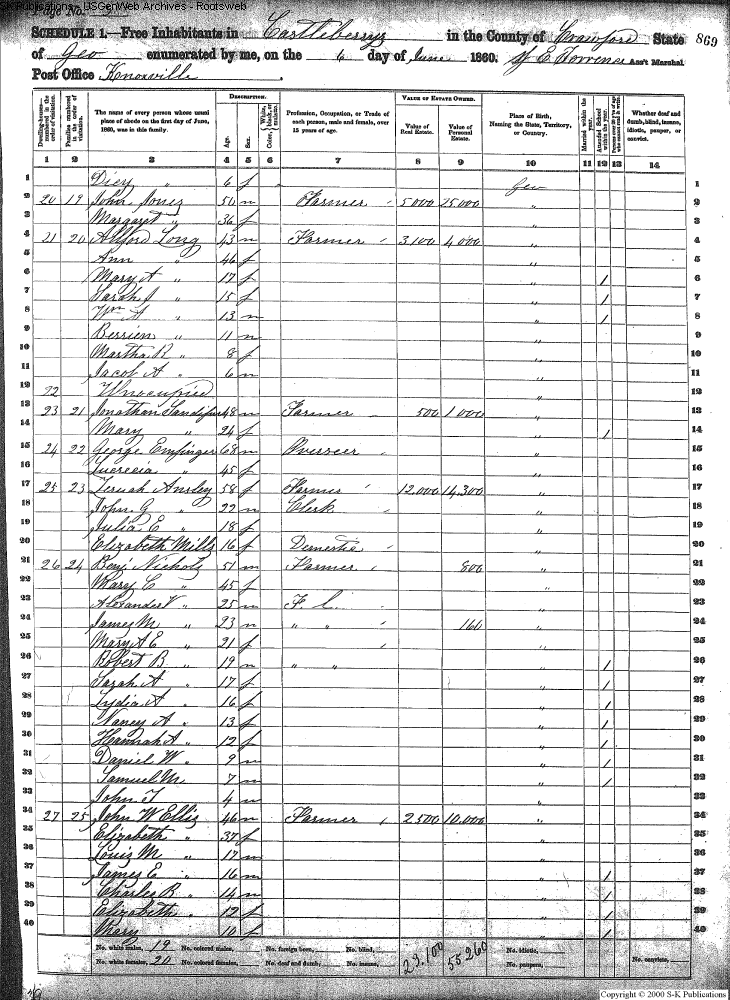 S-K Publications - USGenWeb Archives - Rootsweb
Page No.
SCHEDULE 1.—Free Inhabitants in Castleberrys in the County of Crawford State 869
of Geo enumerated by me, on the 6 day of June 1860. Ass't Marshal
Post Office Knoxville .
Dwelling-houses numbered in the order of visitation. Families numbered in the order of visitation. The name of every person whose usual place of abode on the first day of June, 1860, was in this family. DESCRIPTION. Age. Sex. Color, White, black, or mulatto. Profession, Occupation, or Trade of each person, male and female, over 15 years of age. VALUE OF ESTATE OWNED. Value of Real Estate. Value of Personal Estate. Place of Birth, Naming the State, Territory, or Country. Married within the year. Attended School within the year. Persons over 20 y'rs of age who cannot read & write. Whether deaf and dumb, blind, insane, idiotic, pauper, or convict.
1 2 3 4 5 6 7 8 9 10 11 12 13 14
1 Dicy " 6 f Geo 1
2 20 19 John Jones 50 m Farmer 5000 25,000 " 2
3 Margaret " 36 f " 3
4 21 20 Alford Long 43 m Farmer 3,100 4,000 " 4
5 Ann " 46 f " 5
6 Mary A " 17 f " / 6
7 Sarah J " 15 f " / 7
8 Wm A " 13 m " / 8
9 Berrien " 11 m " 9
10 Martha R " 8 f " 10
11 Jacob A " 6 m " 11
12 22 Unoccupied 12
13 23 21 Jonathan Sandifur 48 m Farmer 500 1,000 " 13
14 Mary " 24 f " / 14
15 24 22 George Emfinger 68 m Overseer " 15
16 Lucrecia " 45 f " 16
17 25 23 Ansley 58 f Farmer 12,000 14,300 " 17
18 John G " 22 m Clerk " 18
19 Julia E " 18 f " 19
20 Elizabeth Mills 16 f Domestic " 20
21 26 24 Benj Nichols 51 m Farmer 800 " 21
22 Mary C " 45 f " 22
23 Alexander V " 25 m F L " 23
24 James M " 23 m " " 160 " 24
25 Mary A E " 21 f " 25
26 Robert B " 19 m " " " / 26
27 Sarah A " 17 f " / 27
28 Lydia A " 16 f " / 28
29 Nancy A " 13 f " / 29
30 Hannah A " 12 f " / 30
31 Daniel W " 9 m " / 31
32 Samuel M 7 m " / 32
33 John T 4 m " 33
34 27 25 John W Ellis 46 m Farmer 2500 10,000 " 34
35 Elizabeth " 37 f " 35
36 Louis M " 17 m " 36
37 James E " 16 m " / 37
38 Charles B " 14 m " / 38
39 Elizabeth " 12 f " / 39
40 Mary 10 f " / 40
No. white males, 19 No. colored males, No. foreign born, No. blind, 23,100 55260 No. idiotic, No. convicts,
No. white females, 20 No. colored females, No. deaf and dumb, No. insane, No. paupers,
Copyright © 2000 S-K Publications